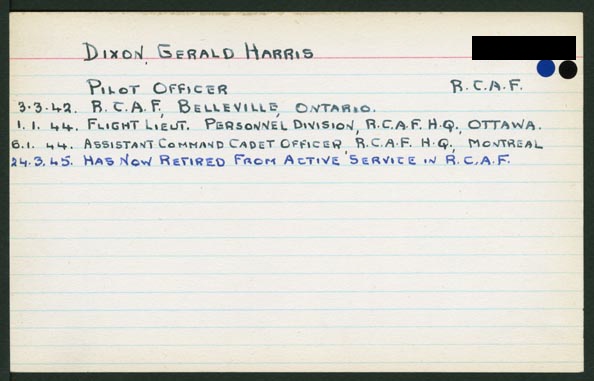 DIXON, GERALD HARRIS
PILOT OFFICER R.C.A.F.
3.3.42. R.C.A.F., BELLEVILLE, ONTARIO.
1.1.44. FLIGHT LIEUT. PERSONNEL DIVISION, R.C.A.F. H.Q., OTTAWA.
6.1.44. ASSISTANT COMMAND CADET OFFICER, R.C.A.F. H.Q., MONTREAL
24.3.45. HAS NOW RETIRED FROM ACTIVE SERVICE IN R.C.A.F.